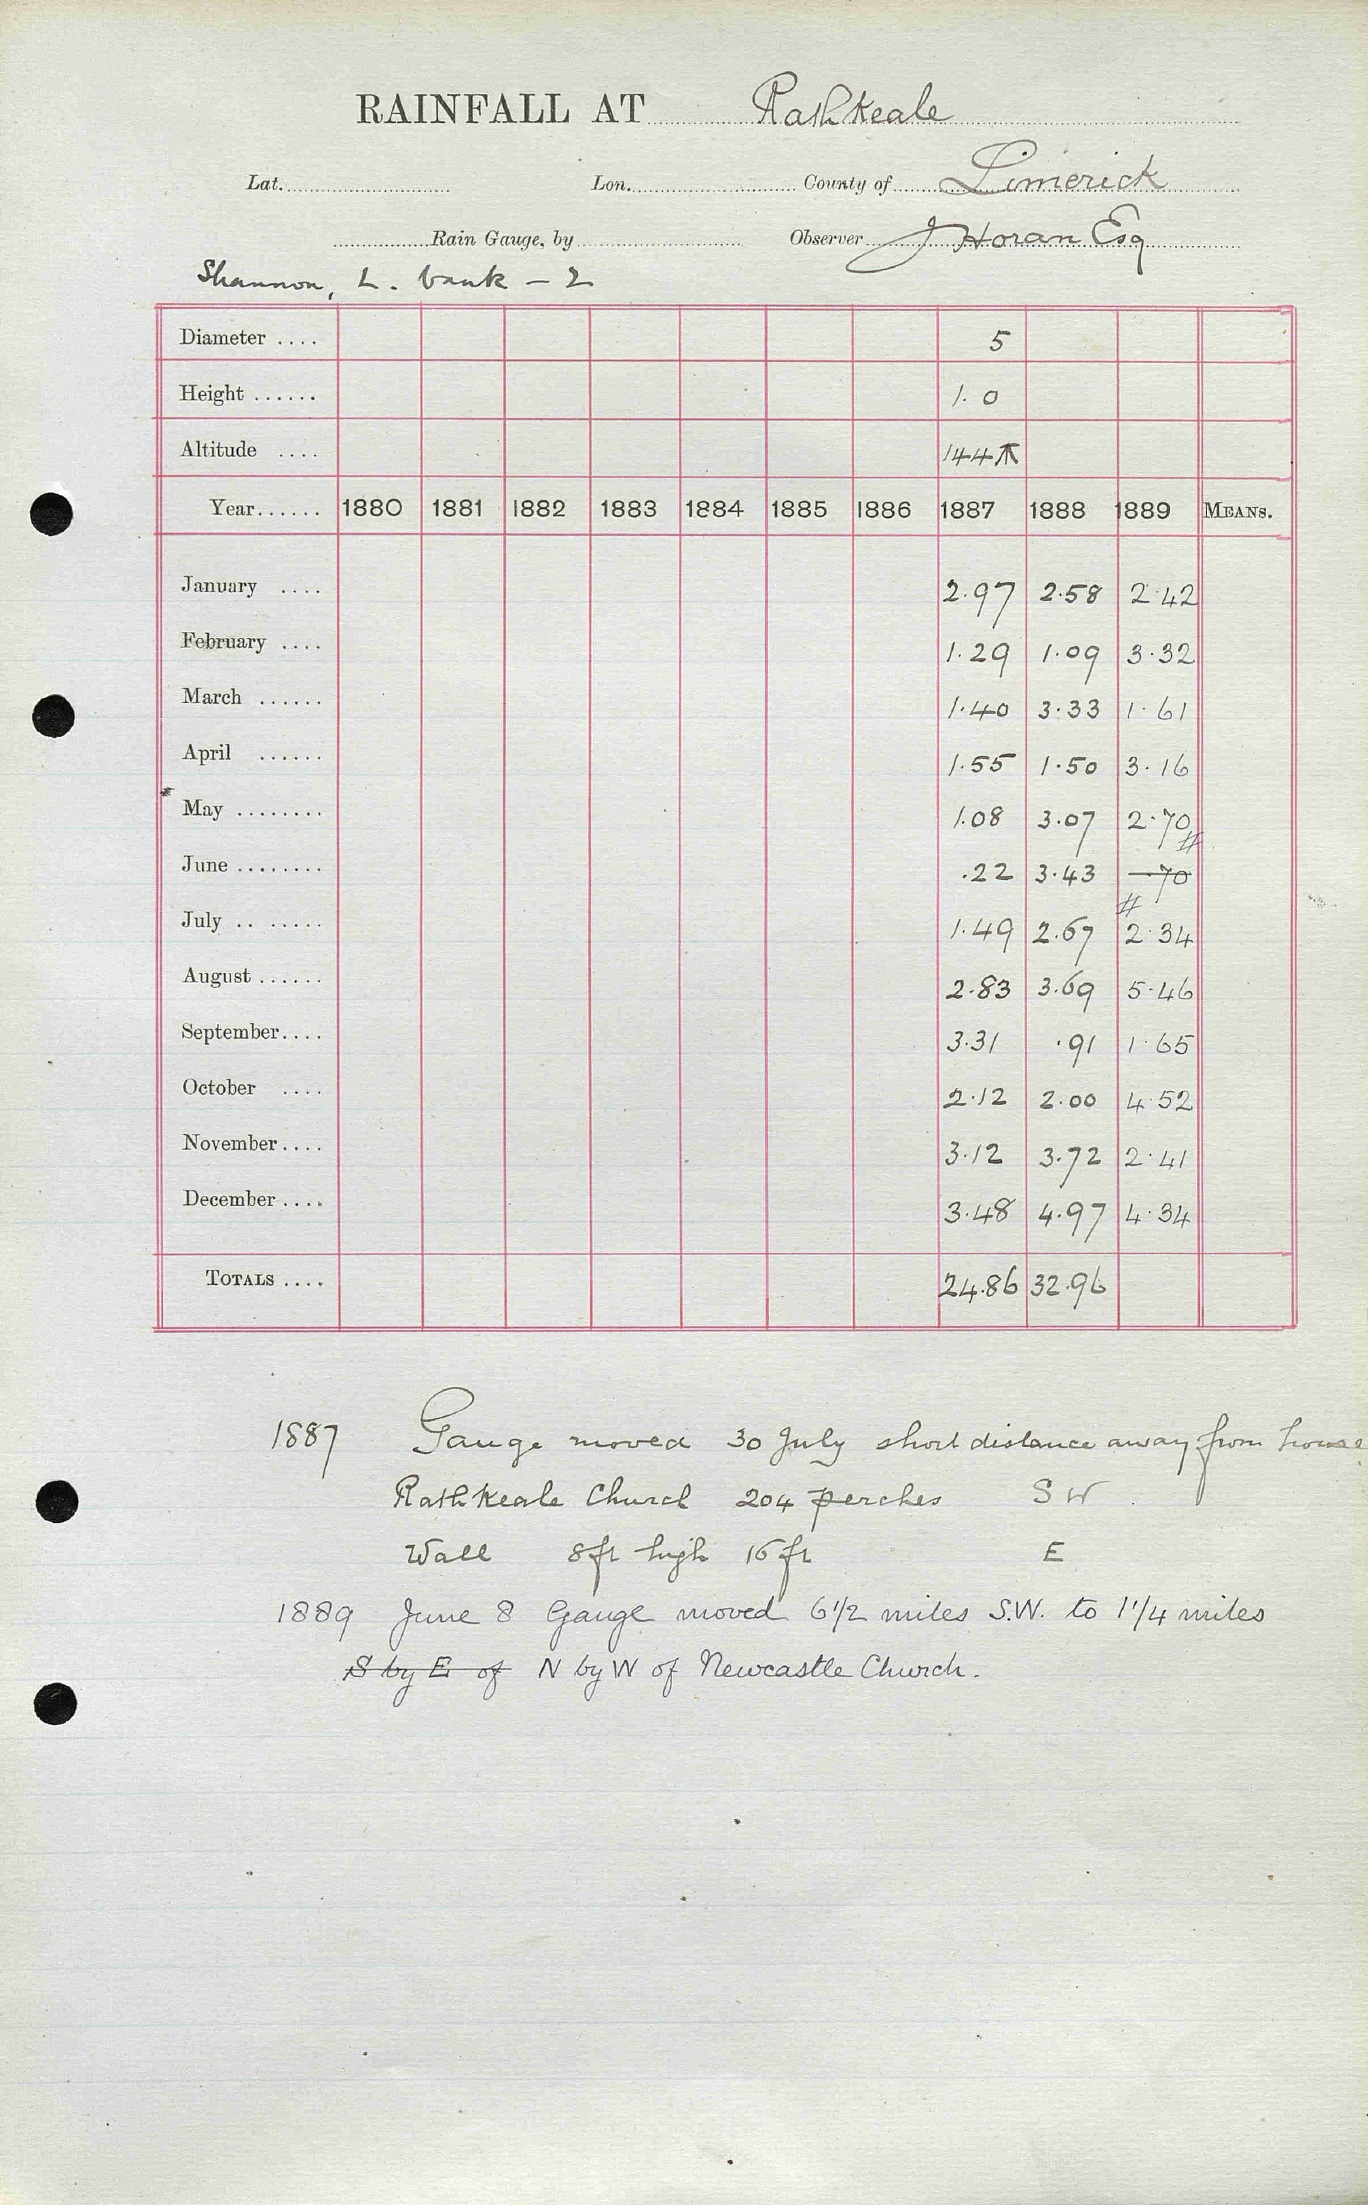 RAINFALL AT Rathkeale
Lat. Lon. County of Limerick
Rain Gauge, by Observer J Horan Esq
Shannon, L. bank – 2
Diameter .... 5
Height ...... 1. 0
Altitude .... 144
Year...... 1880 1881 1882 1883 1884 1885 1886 1887 1888 1889 MEANS.
January .... 2.97 2.58 2.42
February .... 1.29 1.09 3.32
March ...... 1.40 3.33 1.61
April ...... 1.55 1.50 3.16
May ........ 1.08 3.07 2.70 #
June ........ .22 3.43 –70
July .. ..... 1.49 2.67 # 2.34
August ...... 2.83 3.69 5.46
September.... 3.31 .91 1.65
October .... 2.12 2.00 4.52
November.... 3.12 3.72 2.41
December.... 3.48 4.97 4.34
TOTALS .... 24.86 32.96
1887 Gauge moved 30 July short distance away from house
Rathkeale Church 204 perches SW
Wall 8ft high 16 ft E
1889 June 8 Gauge moved 6 1/2 miles S.W. to 1 1/4 miles
S by E of N by W of Newcastle Church.